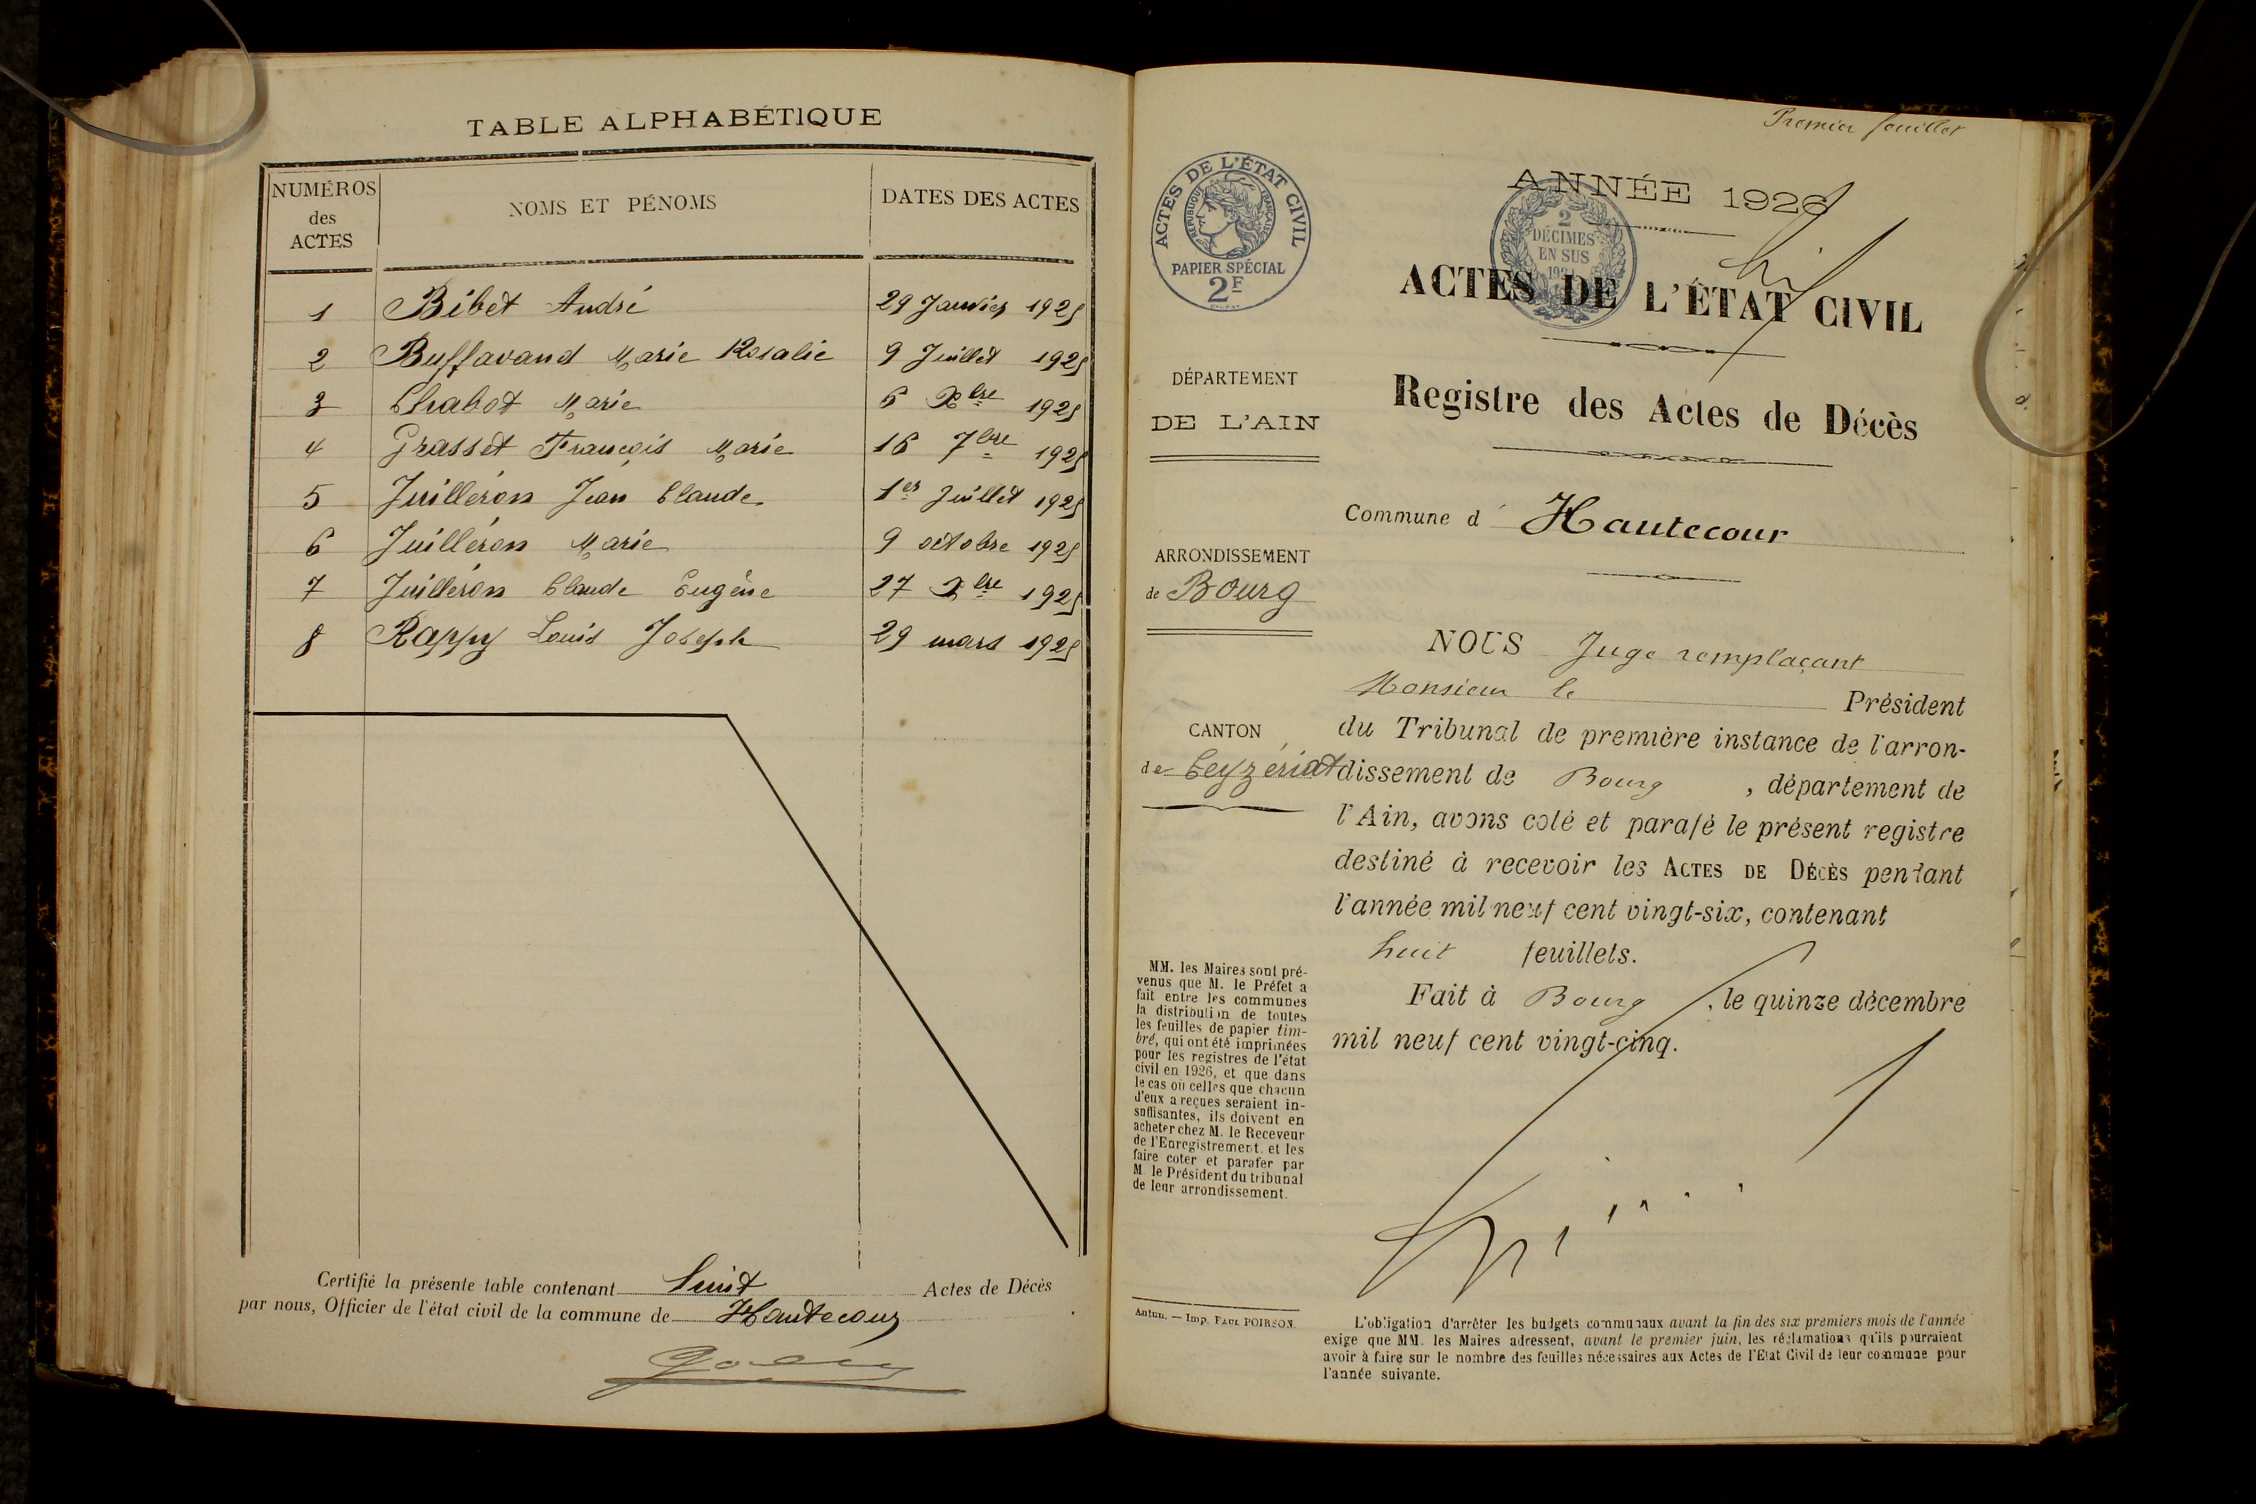 TABLE ALPHABÉTIQUE
NUMÉROS
des
ACTES
NOMS ET PÉNOMS
DATES DES ACTES
1 Bibet André 29 Janvier 1925
2 Buffavand Marie Rosalie 9 Juillet 1925
3 Chabot Marie 6 Xbre 1925
4 Grasset François Marie 16 7bre 1925
5 Juilléron Jean Claude 1er Juillet 1925
6 Juilléron Marie 9 octobre 1925
7 Juilléron Claude Eugène 27 Xbre 1925
8 Rappy Louis Joseph 29 mars 1925
Certifié la présente table contenant huit Actes de Décès
par nous, Officier de l'état civil de la commune de Hautecour
Premier feuillet
ACTES DE L'ÉTAT CIVIL
RÉPUBLIQUE FRANÇAISE
PAPIER SPÉCIAL
2F
2
DÉCIMES
EN SUS
ANNÉE 1926
ACTES DE L'ÉTAT CIVIL
Registre des Actes de Décès
Commune d' Hautecour
DÉPARTEMENT
DE L'AIN
ARRONDISSEMENT
de Bourg
CANTON
de Ceyzériat
NOUS Juge remplaçant
Monsieur le Président
du Tribunal de première instance de l'arron-
dissement de Bourg, département de
l'Ain, avons coté et parafé le présent registre
destiné à recevoir les ACTES DE DÉCÈS pendant
l'année mil neuf cent vingt-six, contenant
huit feuillets.
Fait à Bourg, le quinze décembre
mil neuf cent vingt-cinq.
MM. les Maires sont pré-
venus que M. le Préfet a
fait entre les communes
la distribution de toutes
les feuilles de papier tim-
bré, qui ont été imprimées
pour les registres de l'état
civil en 1926, et que dans
le cas où celles que chacun
d'eux a reçues seraient in-
suffisantes, ils doivent en
acheter chez M. le Receveur
de l'Enregistrement, et les
faire coter et parafer par
M. le Président du tribunal
de leur arrondissement.
Autun. — Imp. PAUL POIRSON.
L'obligation d'arrêter les budgets communaux avant la fin des six premiers mois de l'année
exige que MM. les Maires adressent, avant le premier juin, les réclamations qu'ils pourraient
avoir à faire sur le nombre des feuilles nécessaires aux Actes de l'Etat Civil de leur commune pour
l'année suivante.